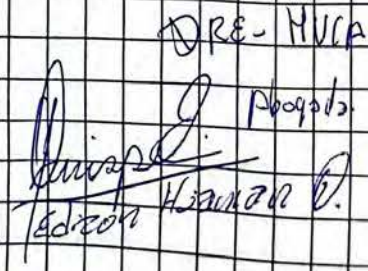 DRE-HVCA
Abogado.
Quispe
Edizon Huaman Q.